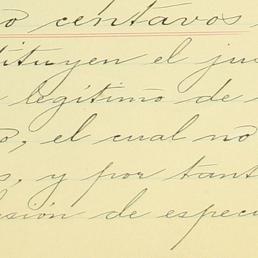 o centavos
tituyen el ju
legítimo de
o, el cual no
s, y por tant
esión de espec